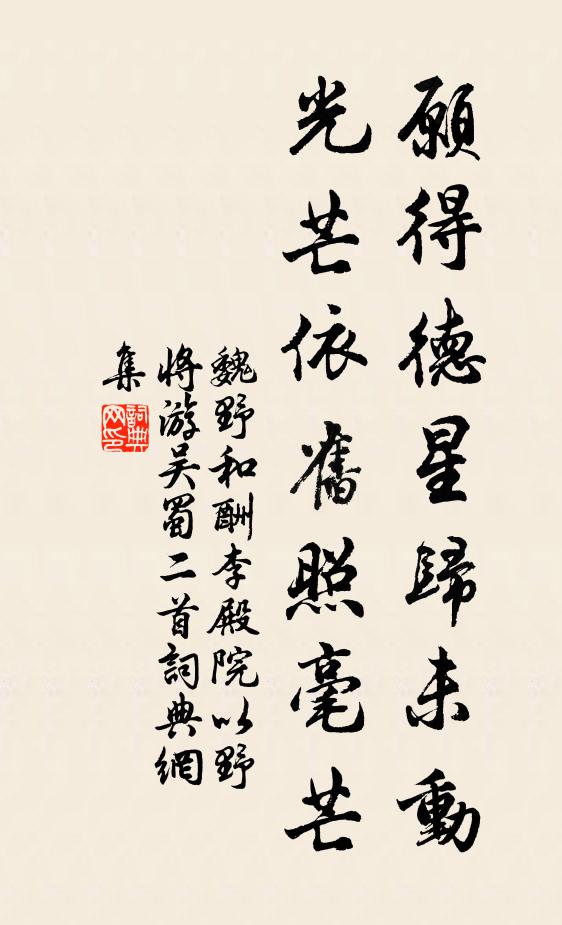 願得德星歸未動
光芒依舊照毫芒
魏野和酬李殿院以野
將游吴蜀二首詞典網
集
詞典
网印